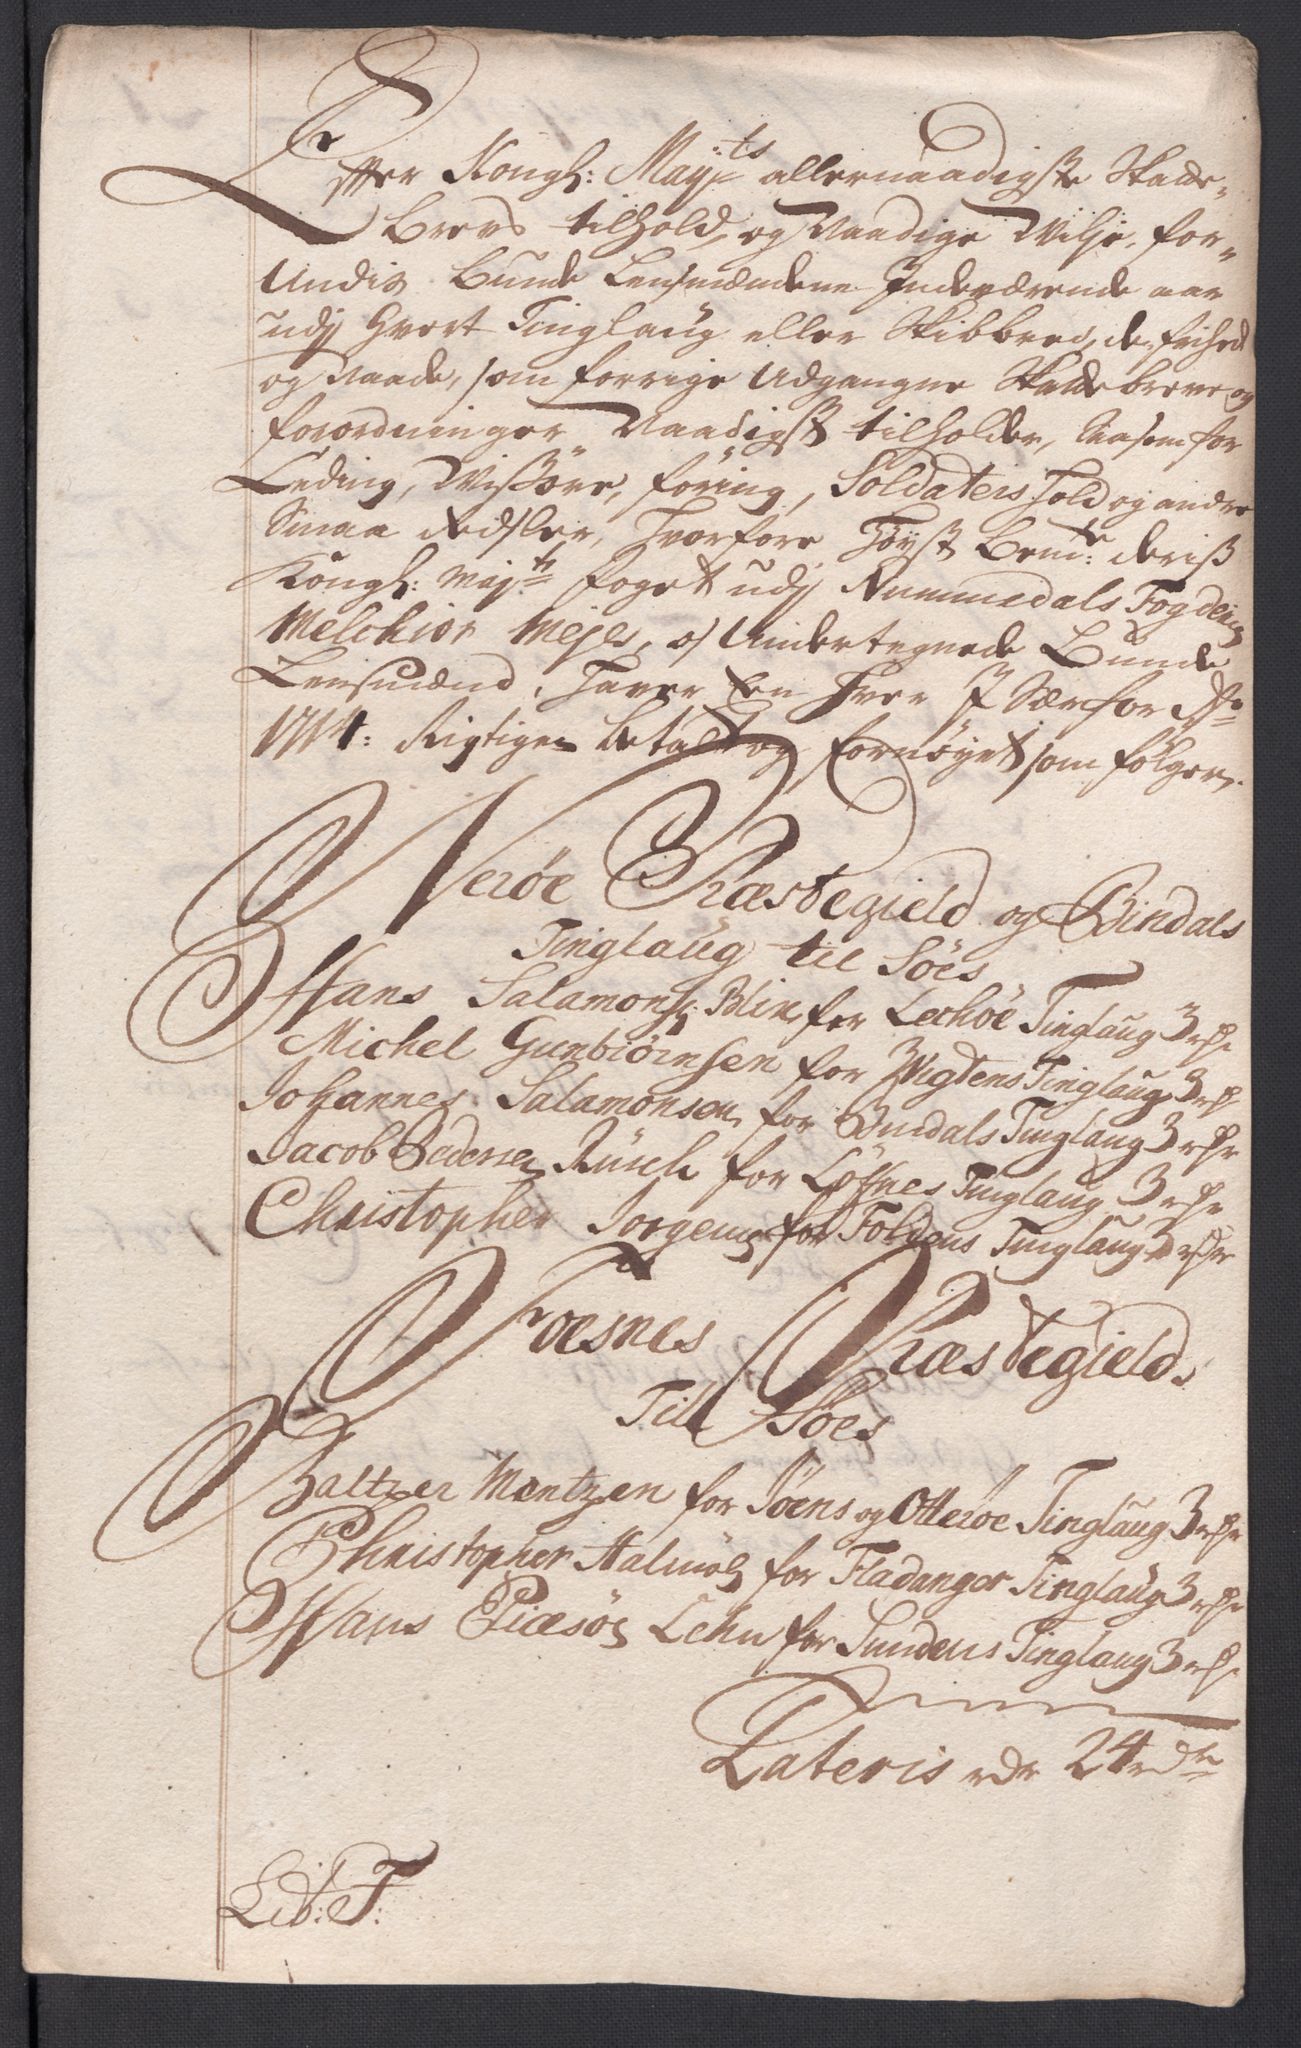 Effter Kongl: Mayts allernaadigste Skatte-
Brevs tilhold, og Naadige Wilje, for-
Undis Bunde Lensmændene Indeværende aar
udj hvert Tinglaug eller Skibbred, de frihed
og Naade, som forrige Udgangne Skattebreve og
forordninger Naadigst tilholder, saasom for
Leding, Wissøre, føring, Soldaters hold og andre
Smaa Redsler, hvorfore høyst Bemte deris
Kongl: Mayts foget udj Nummedals Fogderie
Melchior Mejer, os Undertegnede Bunde
Lensmænd, haver En hver J Sær for Ao
1714: Rigtigen betalt og fornøyet som følger.
Nerøe Præstegield og Bindals
Tinglaug til Søes
Hans Salamons: Blix for Lechøe Tinglaug 3 rdr
Michel Gunbiørnsen for Wigtens Tinglaug 3 rdr
Johannes Salamonsen for Bindals Tinglaug 3 rdr
Jacob Pedersen Rusch for Løfnes Tinglaug 3 rdr
Christopher Jørgens: for Foldens Tinglaug 3 rdr
Foesnes Præstegield
Til Søes
Baltzer Mentzen for Søens og Otterøe Tinglaug 3 rdr
Christopher Halmøe for Fladanger Tinglaug 3 rdr
Hans Lehn for Sundens Tinglaug 3 rdr
Lateris rdr 24 rdr
Lit: F: